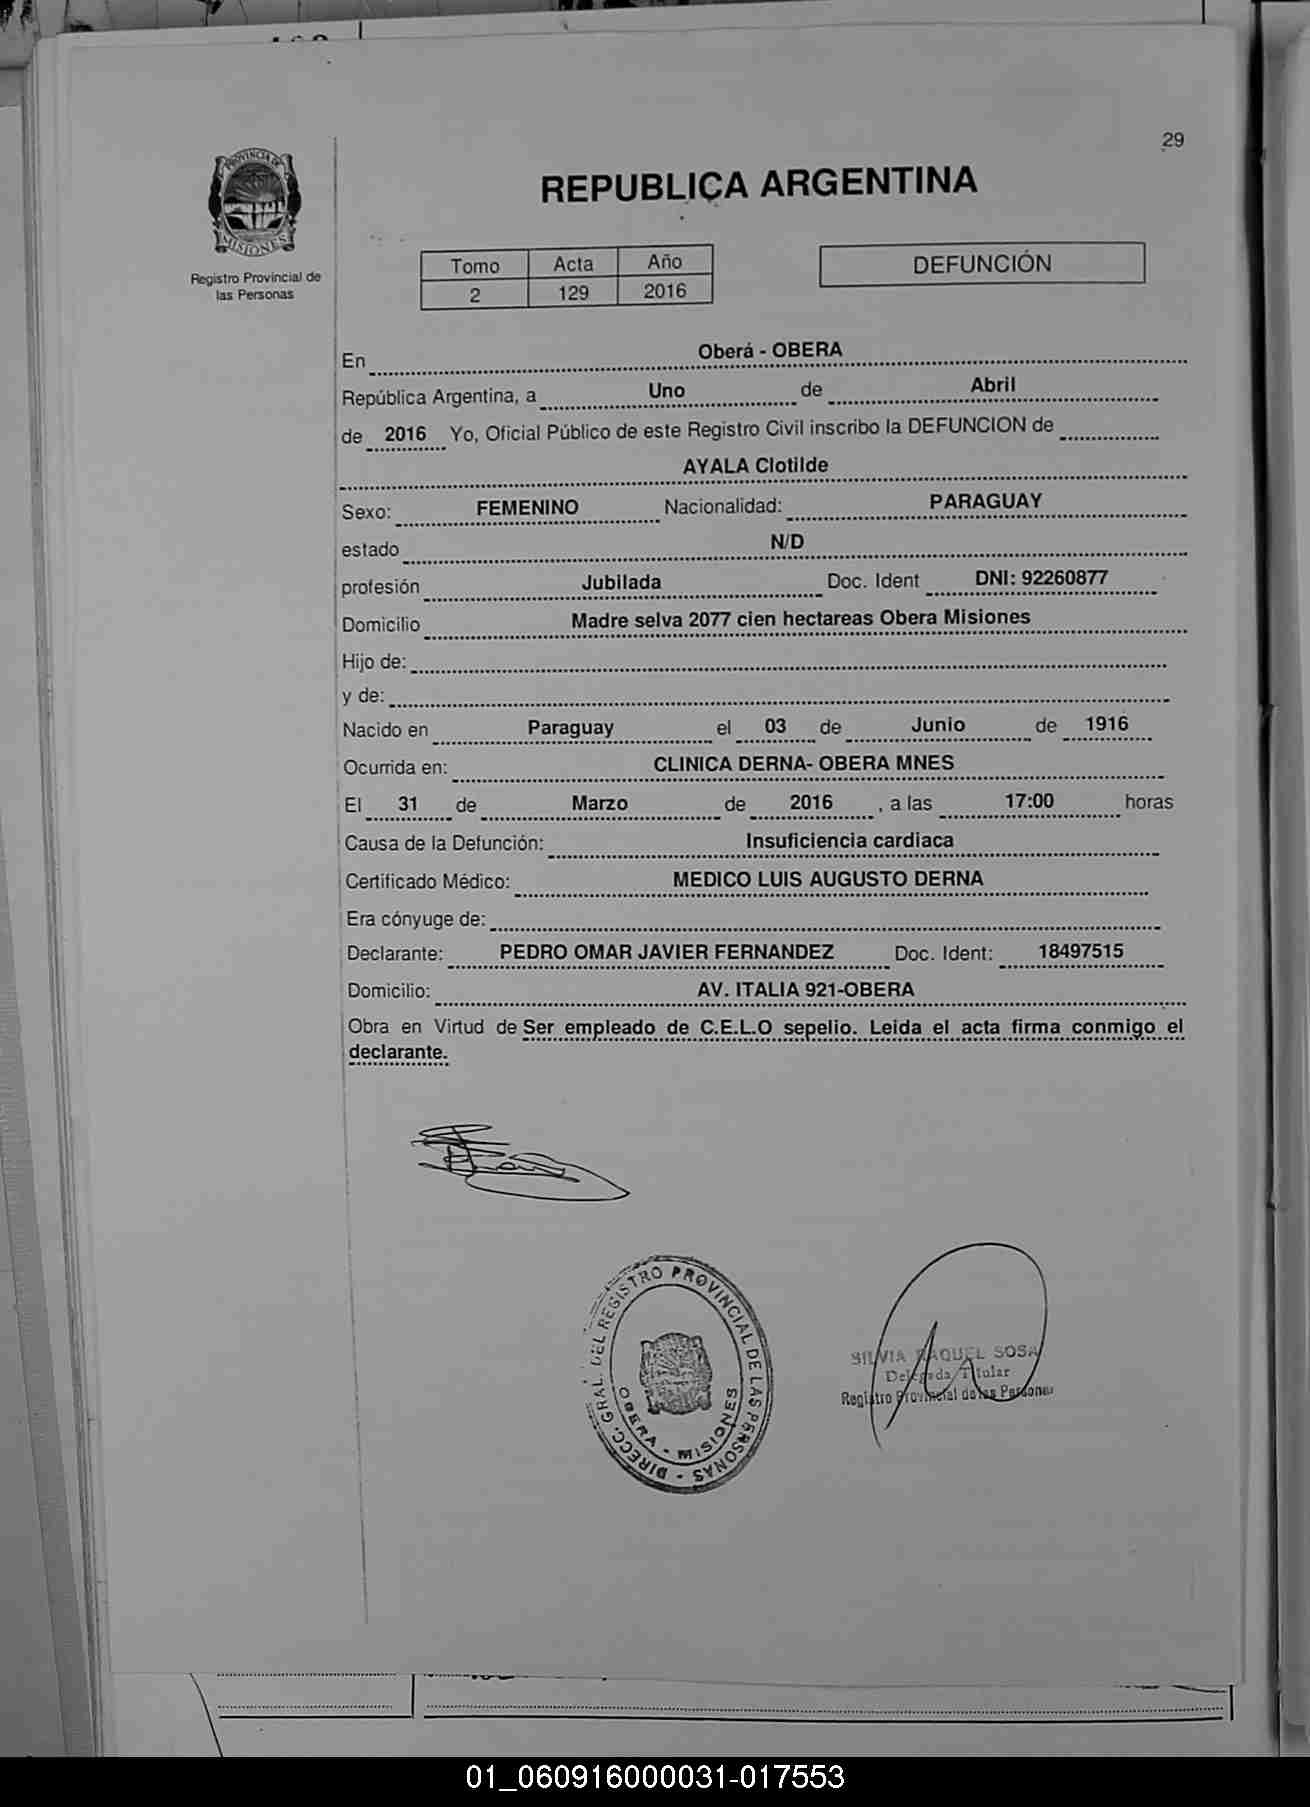 29
PROVINCIA DE
MISIONES
Registro Provincial de
las Personas
REPUBLICA ARGENTINA
Tomo Acta Año
2 129 2016
DEFUNCIÓN
En Oberá - OBERA
República Argentina, a Uno de Abril
de 2016 Yo, Oficial Público de este Registro Civil inscribo la DEFUNCION de
AYALA Clotilde
Sexo: FEMENINO Nacionalidad: PARAGUAY
estado N/D
profesión Jubilada Doc. Ident DNI: 92260877
Domicilio Madre selva 2077 cien hectareas Obera Misiones
Hijo de:
y de:
Nacido en Paraguay el 03 de Junio de 1916
Ocurrida en: CLINICA DERNA- OBERA MNES
El 31 de Marzo de 2016 , a las 17:00 horas
Causa de la Defunción: Insuficiencia cardiaca
Certificado Médico: MEDICO LUIS AUGUSTO DERNA
Era cónyuge de:
Declarante: PEDRO OMAR JAVIER FERNANDEZ Doc. Ident: 18497515
Domicilio: AV. ITALIA 921-OBERA
Obra en Virtud de Ser empleado de C.E.L.O sepelio. Leida el acta firma conmigo el
declarante.
DIRECC. GRAL. DEL REGISTRO PROVINCIAL DE LAS PERSONAS -
OBERA - MISIONES
SILVIA RAQUEL SOSA
Delegada Titular
Registro Provincial de las Personas
01_060916000031-017553